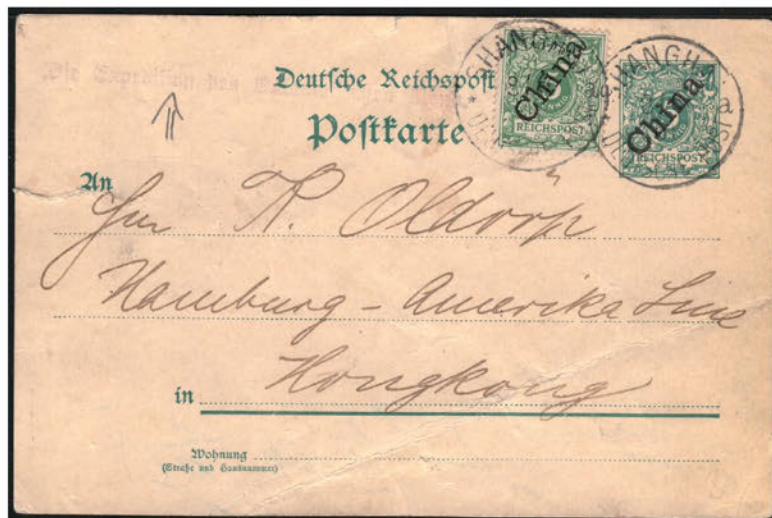 Die Expedition des
Deutsche Reichspost
Postkarte
China
5
REICHSPOST
China
5
REICHSPOST
SHANGHAI
SHANGHAI
a
An
Herrn K. Oldorp
Hamburg - Amerika Linie
in Hongkong
Wohnung
(Straße und Hausnummer)